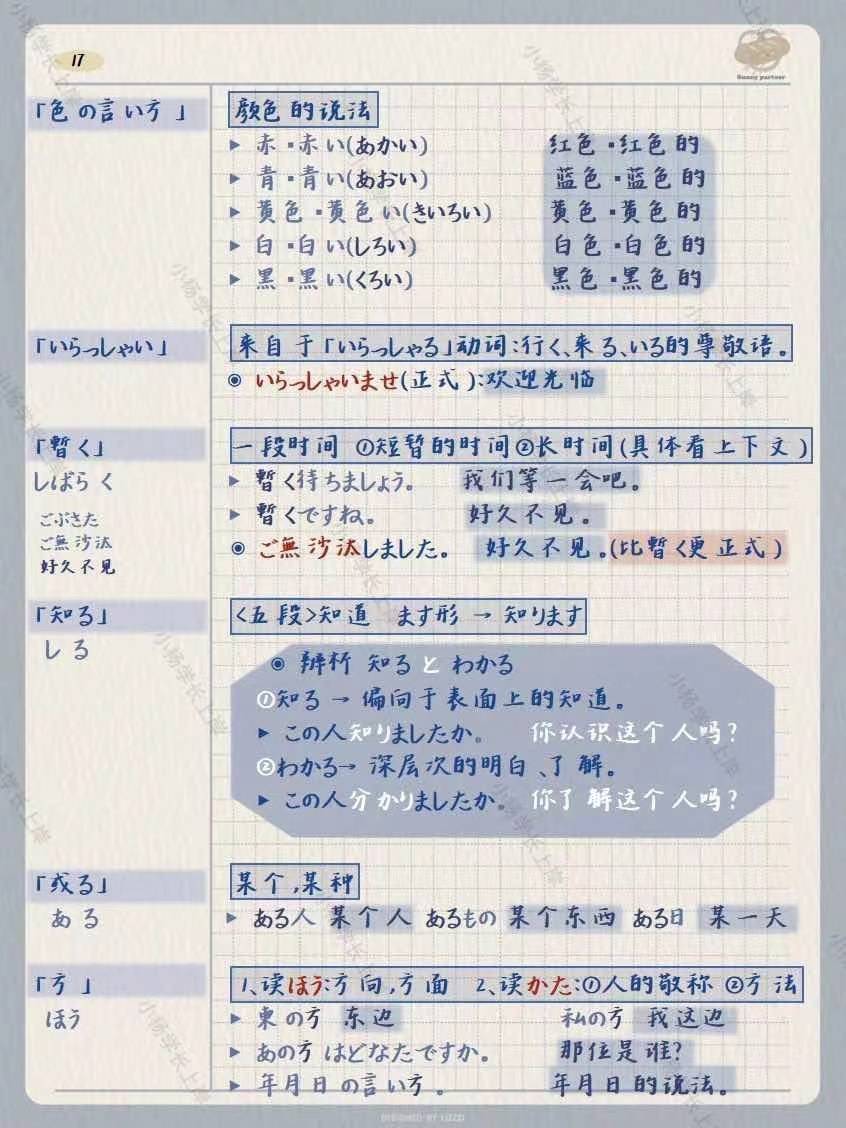 17
Sunny partner
「色の言い方」 颜色的说法
▶ 赤・赤い(あかい) 红色・红色的
▶ 青・青い(あおい) 蓝色・蓝色的
▶ 黄色・黄色い(きいろい) 黄色・黄色的
▶ 白・白い(しろい) 白色・白色的
▶ 黒・黒い(くろい) 黑色・黑色的
「いらっしゃい」 来自于「いらっしゃる」动词:行く、来る、いる的尊敬语。
◉ いらっしゃいませ(正式):欢迎光临
「暫く」 一段时间 ①短暂的时间②长时间(具体看上下文)
しばらく ▶ 暫く待ちましょう。 我们等一会吧。
▶ 暫くですね。 好久不见。
ごぶさた
ご無沙汰 ◉ ご無沙汰しました。 好久不见。(比暫く更正式)
好久不见
「知る」 <五段>知道 ます形 → 知ります
しる
◉ 辨析 知る と わかる
①知る → 偏向于表面上的知道。
▶ この人知りましたか。 你认识这个人吗?
②わかる→ 深层次的明白、了解。
▶ この人分かりましたか。 你了解这个人吗?
「或る」 某个,某种
ある ▶ ある人 某个人 あるもの 某个东西 ある日 某一天
「方」 1、读ほう:方向,方面 2、读かた:①人的敬称 ②方法
ほう ▶ 東の方 东边 私の方 我这边
▶ あの方はどなたですか。 那位是谁?
▶ 年月日の言い方。 年月日的说法。
小杨学长上岸